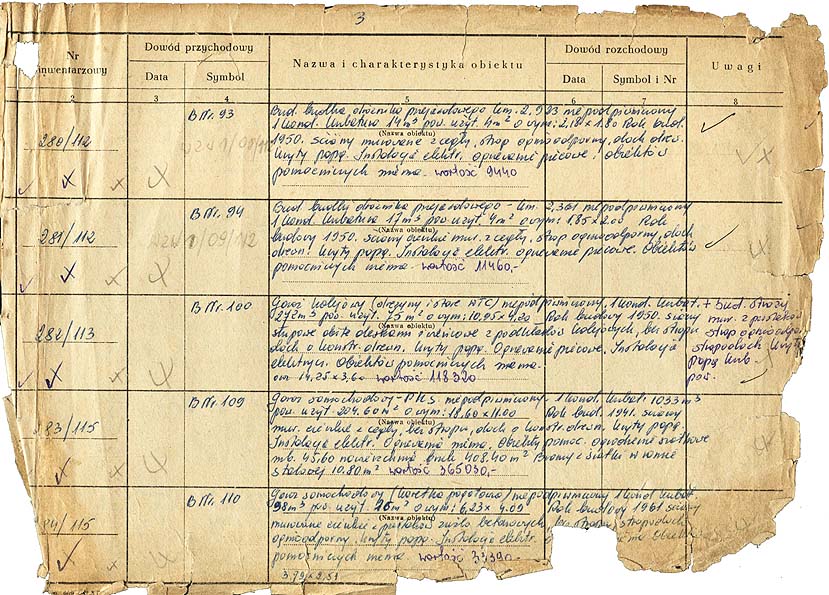 3
Nr inwentarzowy
Dowód przychodowy
Data
Symbol
Nazwa i charakterystyka obiektu
Dowód rozchodowy
Data
Symbol i Nr
Uwagi
2
3
4
5
6
8
280/112
B Nr. 93
Bud. budka dróżnika przejazdowego km. 2,983 niepodpiwniczony
1 kond. kubatura 14 m³ pow. użyt. 4 m² o wym: 2,18 x 1.80 Rok bud.
(Nazwa obiektu)
1950. ściany murowane z cegły, strop ognioodporny, dach drew.
kryty papą. Instalacja elektr. ogrzewanie piecowe. Obiektów
pomocniczych niema. wartość 9440
281/112
B Nr. 94
Bud budki dróżnika przejazdowego - km. 2,361 niepodpiwniczony
1 kond. kubatura 17 m³ pow. użyt. 4 m² o wym: 1,85 x 2.00 Rok
(Nazwa obiektu)
budowy 1950. ściany cienkie mur. z cegły, strop ognioodporny, dach
drewn. kryty papą. Instalacja elektr. ogrzewanie piecowe. Obiektów
pomocniczych niema. wartość 11460,-
282/113
B Nr. 100
Garaż kolejowy niepodpiwniczony, 1 kond. kubat.
pow. użyt. 75 m² o wym: 10,95 x 4,20 Rok budowy 1950. ściany
słupowe obite deskami z podkładów kolejowych, bez stropu
dach o konstr. drewn. kryty papą. Ogrzewanie piecowe. Instalacja
elektrycz. Obiektów pomocniczych niema.
om 14,25 x 3,60 wartość 118320
+ bud. straży
mur. z pustaków
strop ognioodpo
stropodach kryty
papą kub.
pow.
83/115
B Nr. 109
Garaż samochodowy - PKS niepodpiwniczony 1 kond. kubat. 1033 m³
pow. użyt. 204.60 m² o wym: 18,60 x 11.00 Rok bud. 1941. ściany
(Nazwa obiektu)
mur. cienkie z cegły, bez stropu, dach o konstr. drewn. kryty papą.
Instalacja elektr. Ogrzewania niema. Obiekty pomoc. ogrodzenie siatkowe
m.b. 45.60 nawierzchnia bruk 408.40 m² Bramy z siatki w ramie
stalowej 10.80 m² wartość 365030,-
84/115
B Nr. 110
Garaż samochodowy (karetka pogotowia) niepodpiwniczony 1 kond kubat.
98 m³ pow. użyt. 26 m² o wym: 6,23 x 4.09 Rok budowy 1961 ściany
(Nazwa obiektu)
murowane cienkie z pustaków żużlo betonowych, bez stropu, stropodach
ognioodporny kryty papą. Instalacja elektr. Obiektów
pomocniczych niema. wartość 33390.-
3.79 x 2,51